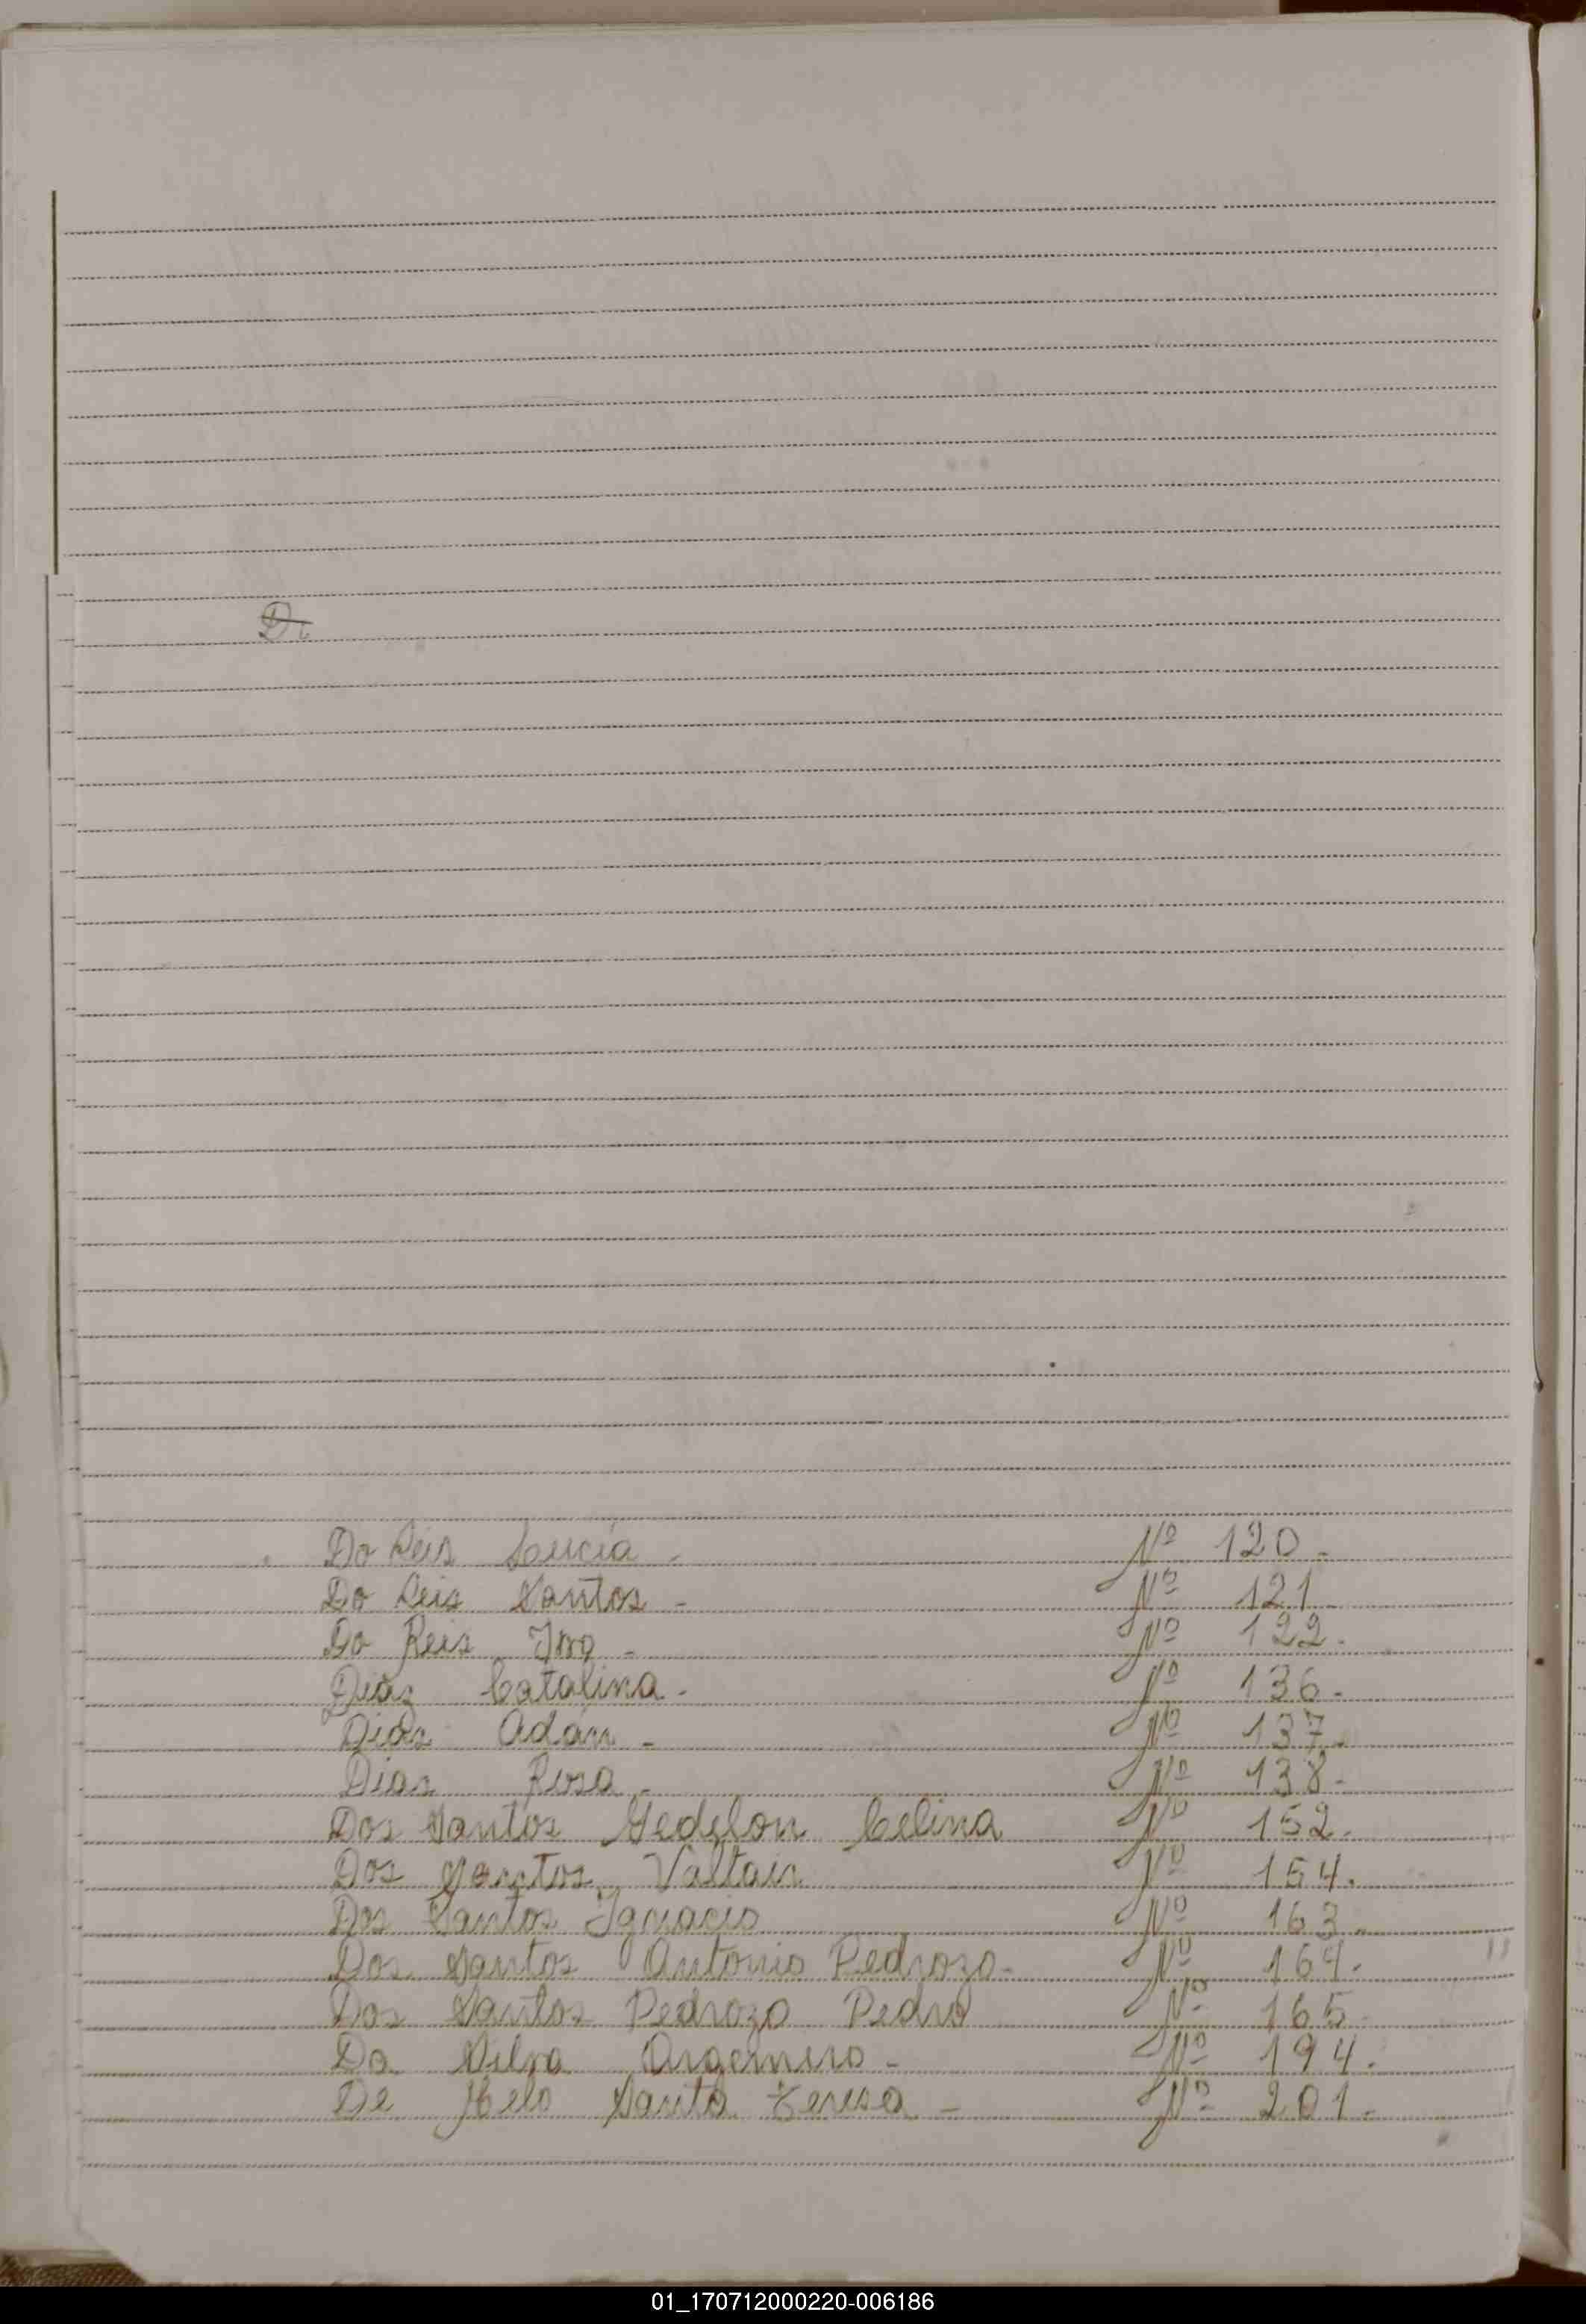 Di
Do Reis Lucía - Nº 120 -
Do Reis Santos - Nº 121
Do Reis - Nº 122 -
Dias Catalina - Nº 136 -
Dias Adán - Nº 137 -
Dias Rosa - Nº 138 -
Dos Santos Celina Nº 152.
Dos Santos Valtair Nº 154.
Dos Santos Ignacio Nº 163.
Dos Santos Antonio Pedrozo - Nº 164. "
Dos Santos Pedrozo Pedro Nº 165
Da Silva Argemiro - Nº 194.
De Melo Santa Teresa - Nº 201.
01_170712000220-006186